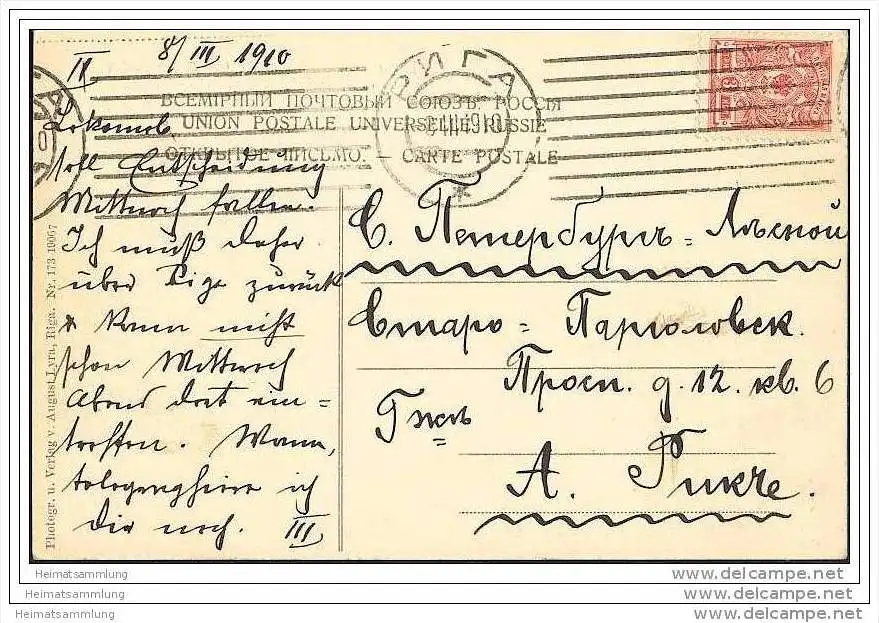 II 8/III 1910
РИГА
ВСЕМІРНЫЙ ПОЧТОВЫЙ СОЮЗЪ. РОССІЯ
UNION POSTALE UNIVERSELLE. RUSSIE
ОТКРЫТОЕ ПИСЬМО. – CARTE POSTALE
Lokomob.
soll Entscheidung
Mittwoch fallen.
Ich muß daher
über Riga zurück
* Kann nicht
schon Mittwoch
Abend dort ein=
treffen. Wann,
telegraphiere ich
Dir noch. III
С. Петербургъ = Лѣсной
Старо = Парголовск.
Просп. д. 12. кв. 6
Гжѣ
А. Рикче.
Photogr. u. Verlag v. August Lyra, Riga. Nr. 173 19067
Heimatsammlung
Heimatsammlung
Heimatsammlung
www.delcampe.net
www.delcampe.net
www.delcampe.net